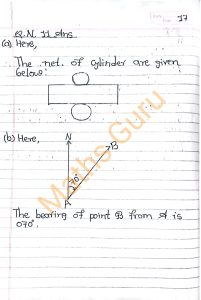 17
Q.N. 11 Ans
(a) Here,
The net of cylinder are given
below:
(b) Here,
N
B
70°
A
The bearing of point B from A is
070°.
Maths Guru